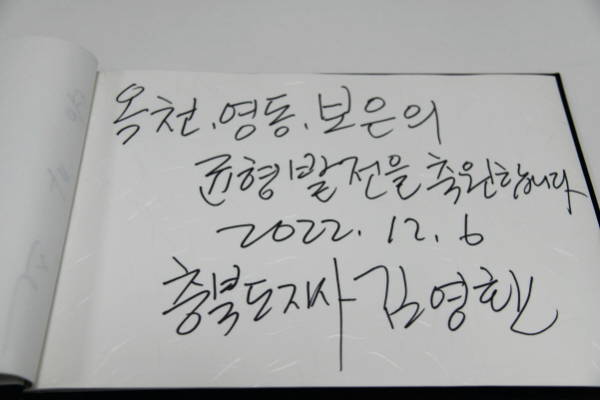 옥천.영동.보은의
균형발전을 축원합니다
2022. 12. 6
충북도지사 김영환